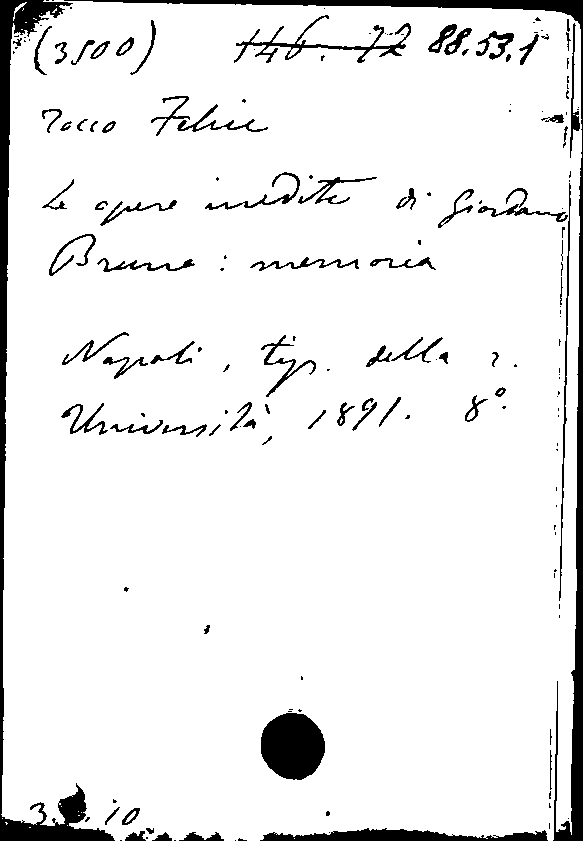 (3500) 146. 72 88.53.1
Tocco Felice
Le opere inedite di Giordano
Bruno : memoria
Napoli, tip. della r.
Università, 1891. 8º.
3. 10